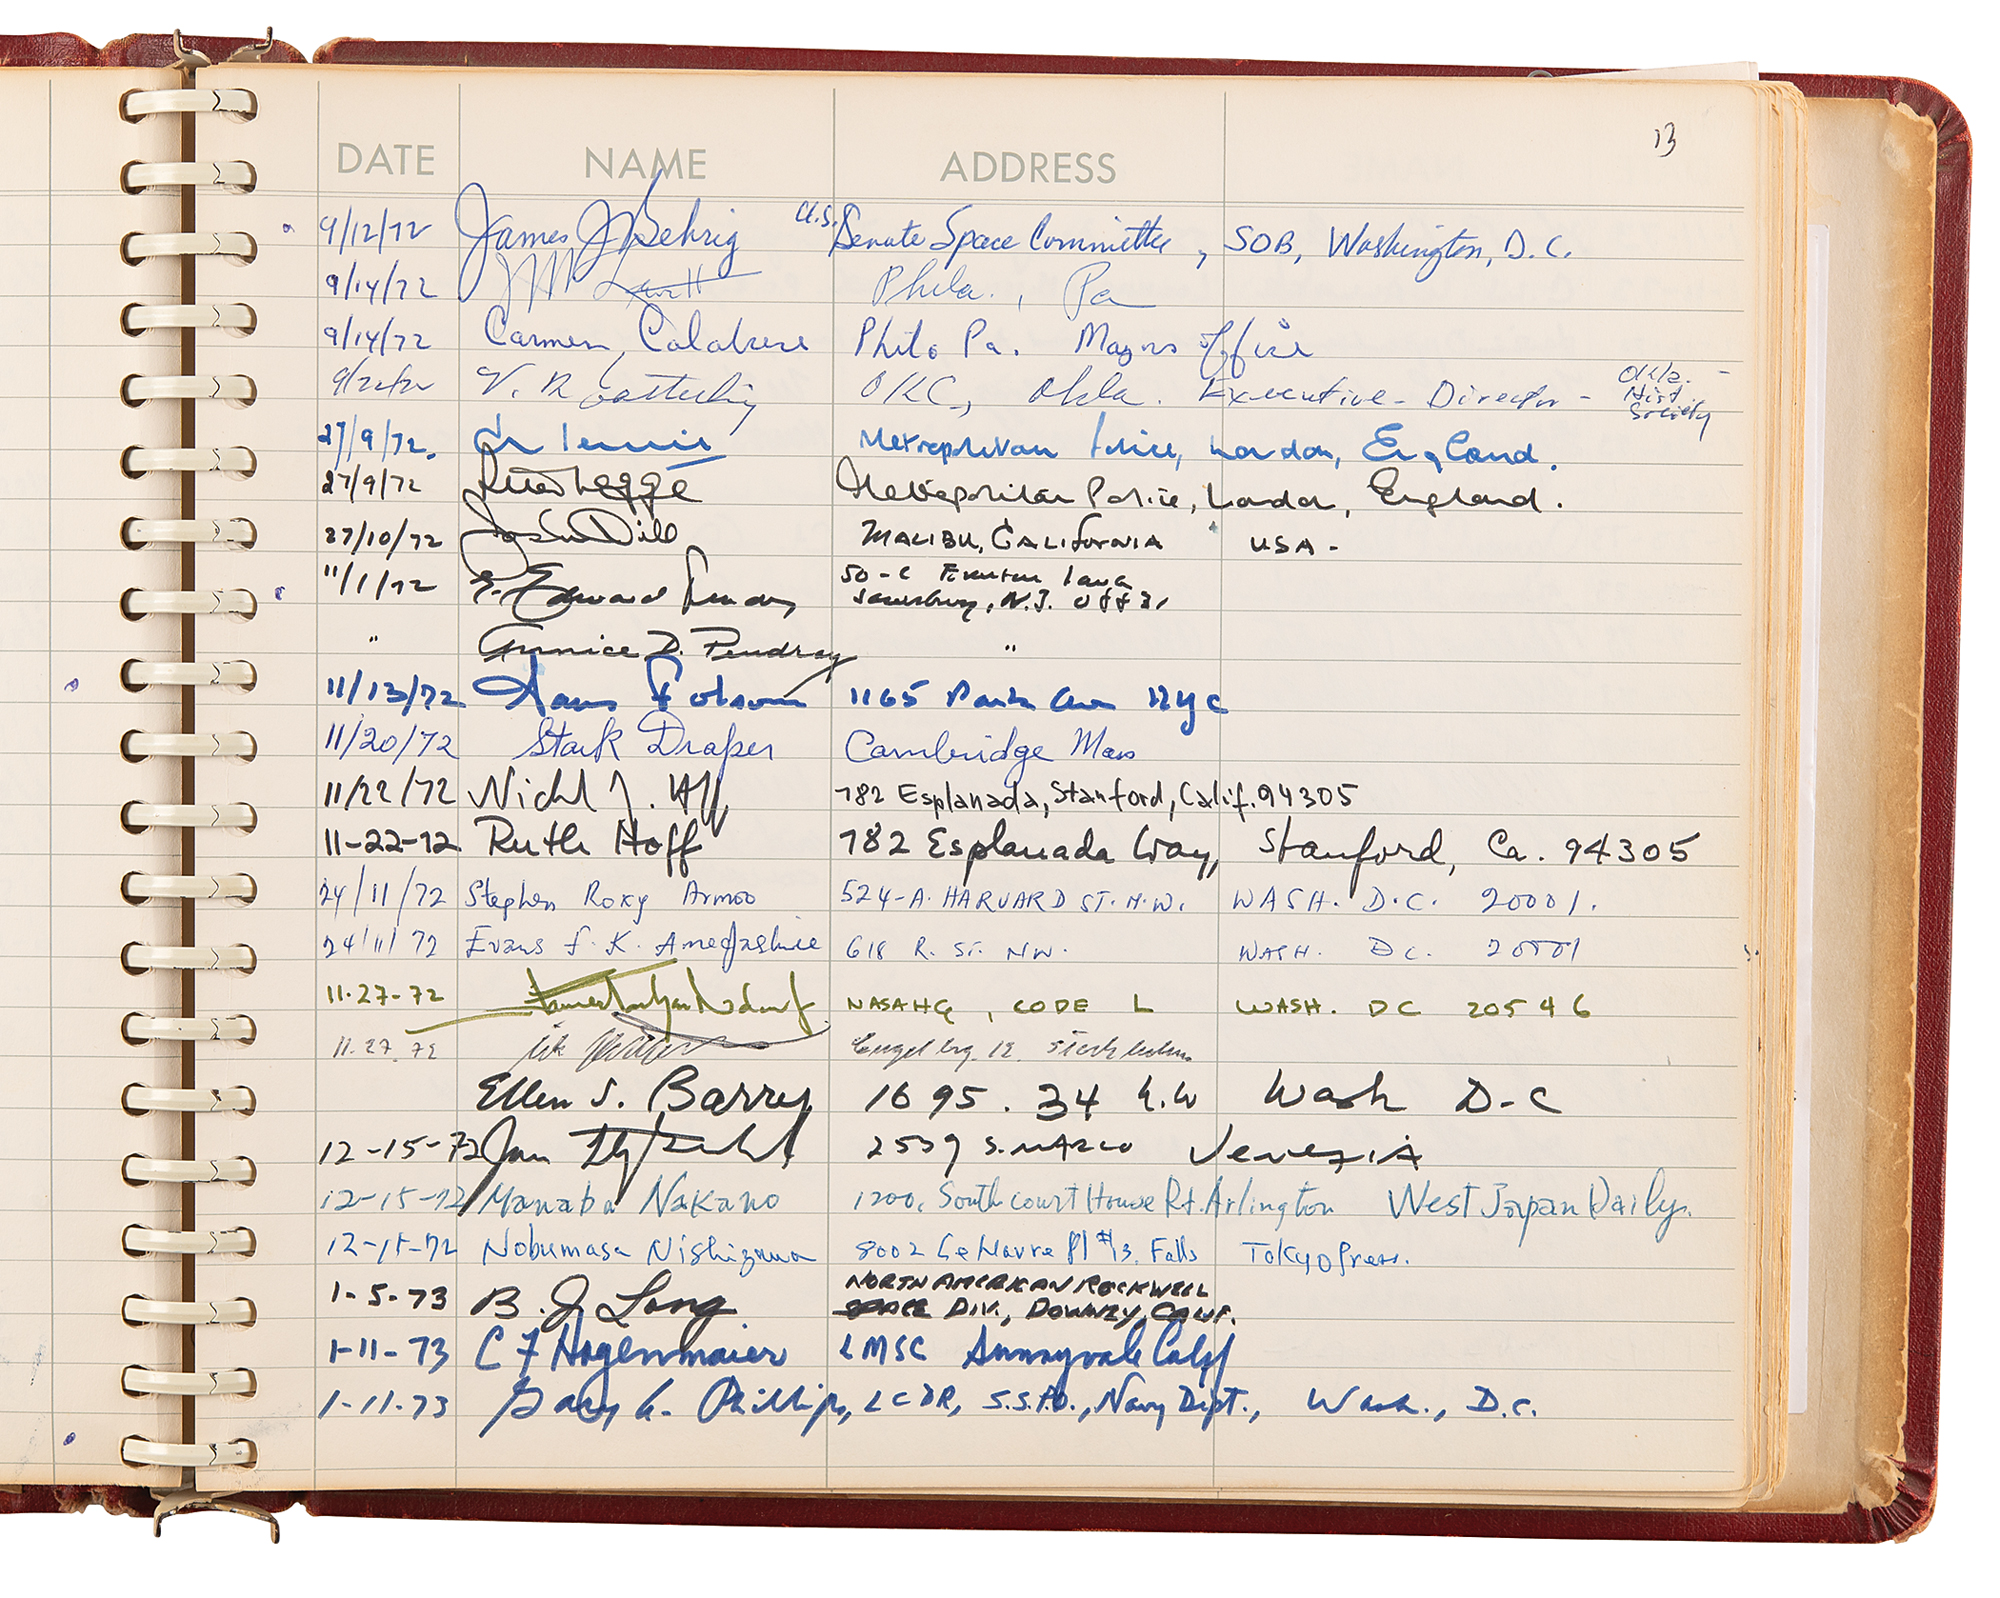 13
DATE NAME ADDRESS
9/12/72 James J Gehrig U.S. Senate Space Committee, SOB, Washington, D.C.
9/14/72 Phila., Pa
9/14/72 Carmen Calabrese Phila Pa. Mayors Office
9/22/72 V. R OKC, Okla. Executive - Director - Okla. Hist Society
27/9/72. Metropolitan Police, London, England.
27/9/72 Legge Metropolitan Police, London, England.
27/10/72 Dill MALIBU, CALIFORNIA USA -
11/1/72 G. Edward Pendray 50-C
Jamesburg, N.J. 08831
" Annice D. Pendray "
11/13/72 1165 Park Ave NYC
11/20/72 Stark Draper Cambridge Mass
11/22/72 Nichl J. Hoff 782 Esplanada, Stanford, Calif. 94305
11-22-72 Ruth Hoff 782 Esplanada Way, Stanford, Ca. 94305
24/11/72 Stephen Roxy Armoo 524-A. HARVARD ST. N.W. WASH. D.C. 20001.
24/11/72 Evans F. K. 618 R. ST. NW. WASH. DC. 20001
11-27-72 NASA HQ, CODE L WASH. DC 20546
11.27.72 Stockholm
Ellen S. Barry 1695. 34 N.W Wash D-C
12-15-72 Jan 2539 S. MARCO VENEZIA
12-15-72 Manabu Nakano 1200, South court House Rd. Arlington West Japan Daily.
12-15-72 Nobumasa Nishizawa 8002 Le Havre Pl #13. Falls Tokyo Press.
1-5-73 B. J Long NORTH AMERICAN ROCKWELL
SPACE DIV., DOWNEY, CALIF.
1-11-73 C F Hagenmaier LMSC Sunnyvale Calif
1-11-73 Gary G. Phillips, LCDR, S.S.P.O., Navy Dept., Wash., D.C.